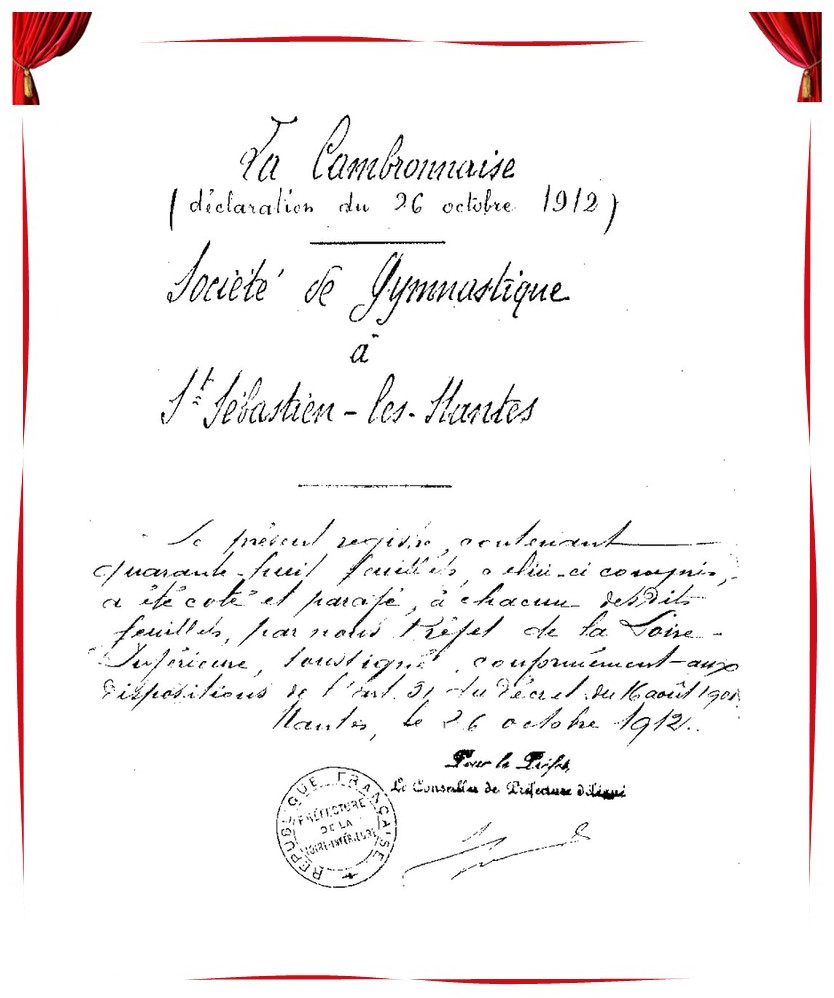 La Cambronnaise
(déclaration du 26 octobre 1912)
Société de Gymnastique
à
St Sébastien-les-Nantes
Le présent registre, contenant
quarante-huit feuillets, celui-ci compris,
a été coté et parafé, à chacun desdits
feuillets, par nous Préfet de la Loire-
Inférieure, soussigné, conformément aux
dispositions de l'art. 31 du décret du 16 août 1901.
Nantes, le 26 octobre 1912.
Pour le Préfet,
Le Conseiller de Préfecture délégué
REPUBLIQUE FRANÇAISE
PRÉFECTURE
DE LA
LOIRE-INFÉRIEURE